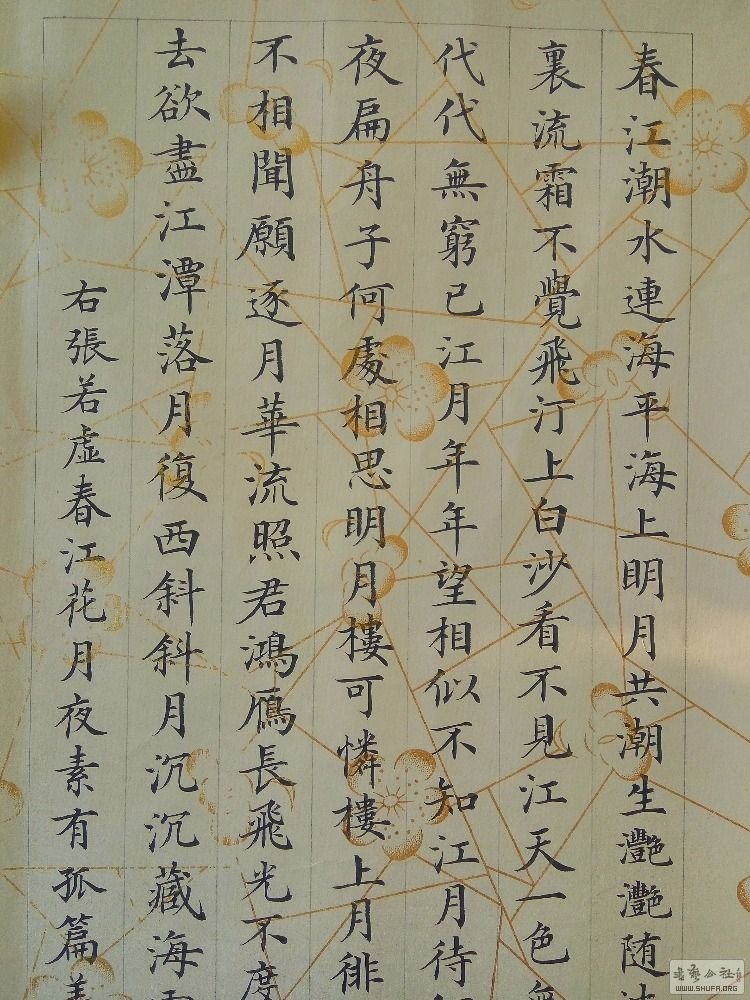 春江潮水連海平海上明月共潮生灧灧随
裏流霜不覺飛汀上白沙看不見江天一色無
代代無窮已江月年年望相似不知江月待
夜扁舟子何處相思明月樓可憐樓上月徘
不相聞願逐月華流照君鴻雁長飛光不度
去欲盡江潭落月復西斜斜月沉沉藏海
右張若虛春江花月夜素有孤篇
书艺公社
WWW.SHUFA.ORG